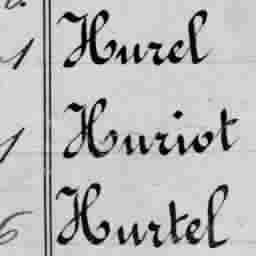 1 Hurel
1 Huriot
6 Hurtel